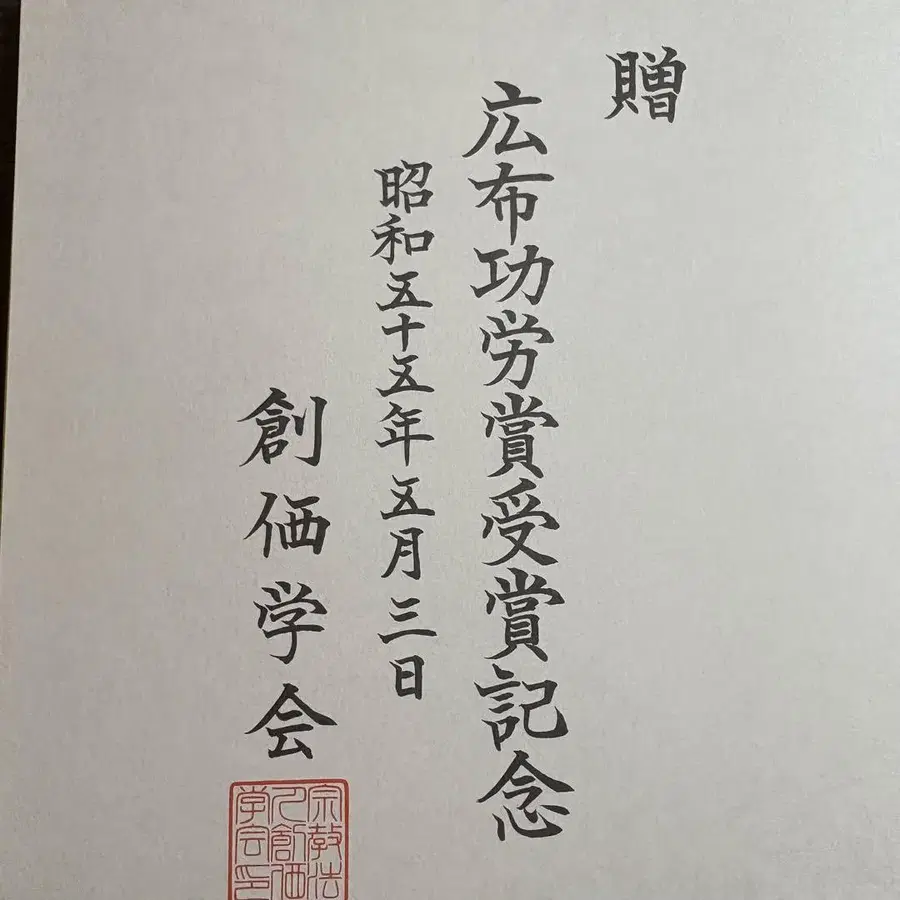 贈
広布功労賞受賞記念
昭和五十五年五月三日
創価学会
宗教法
人創価
学会印